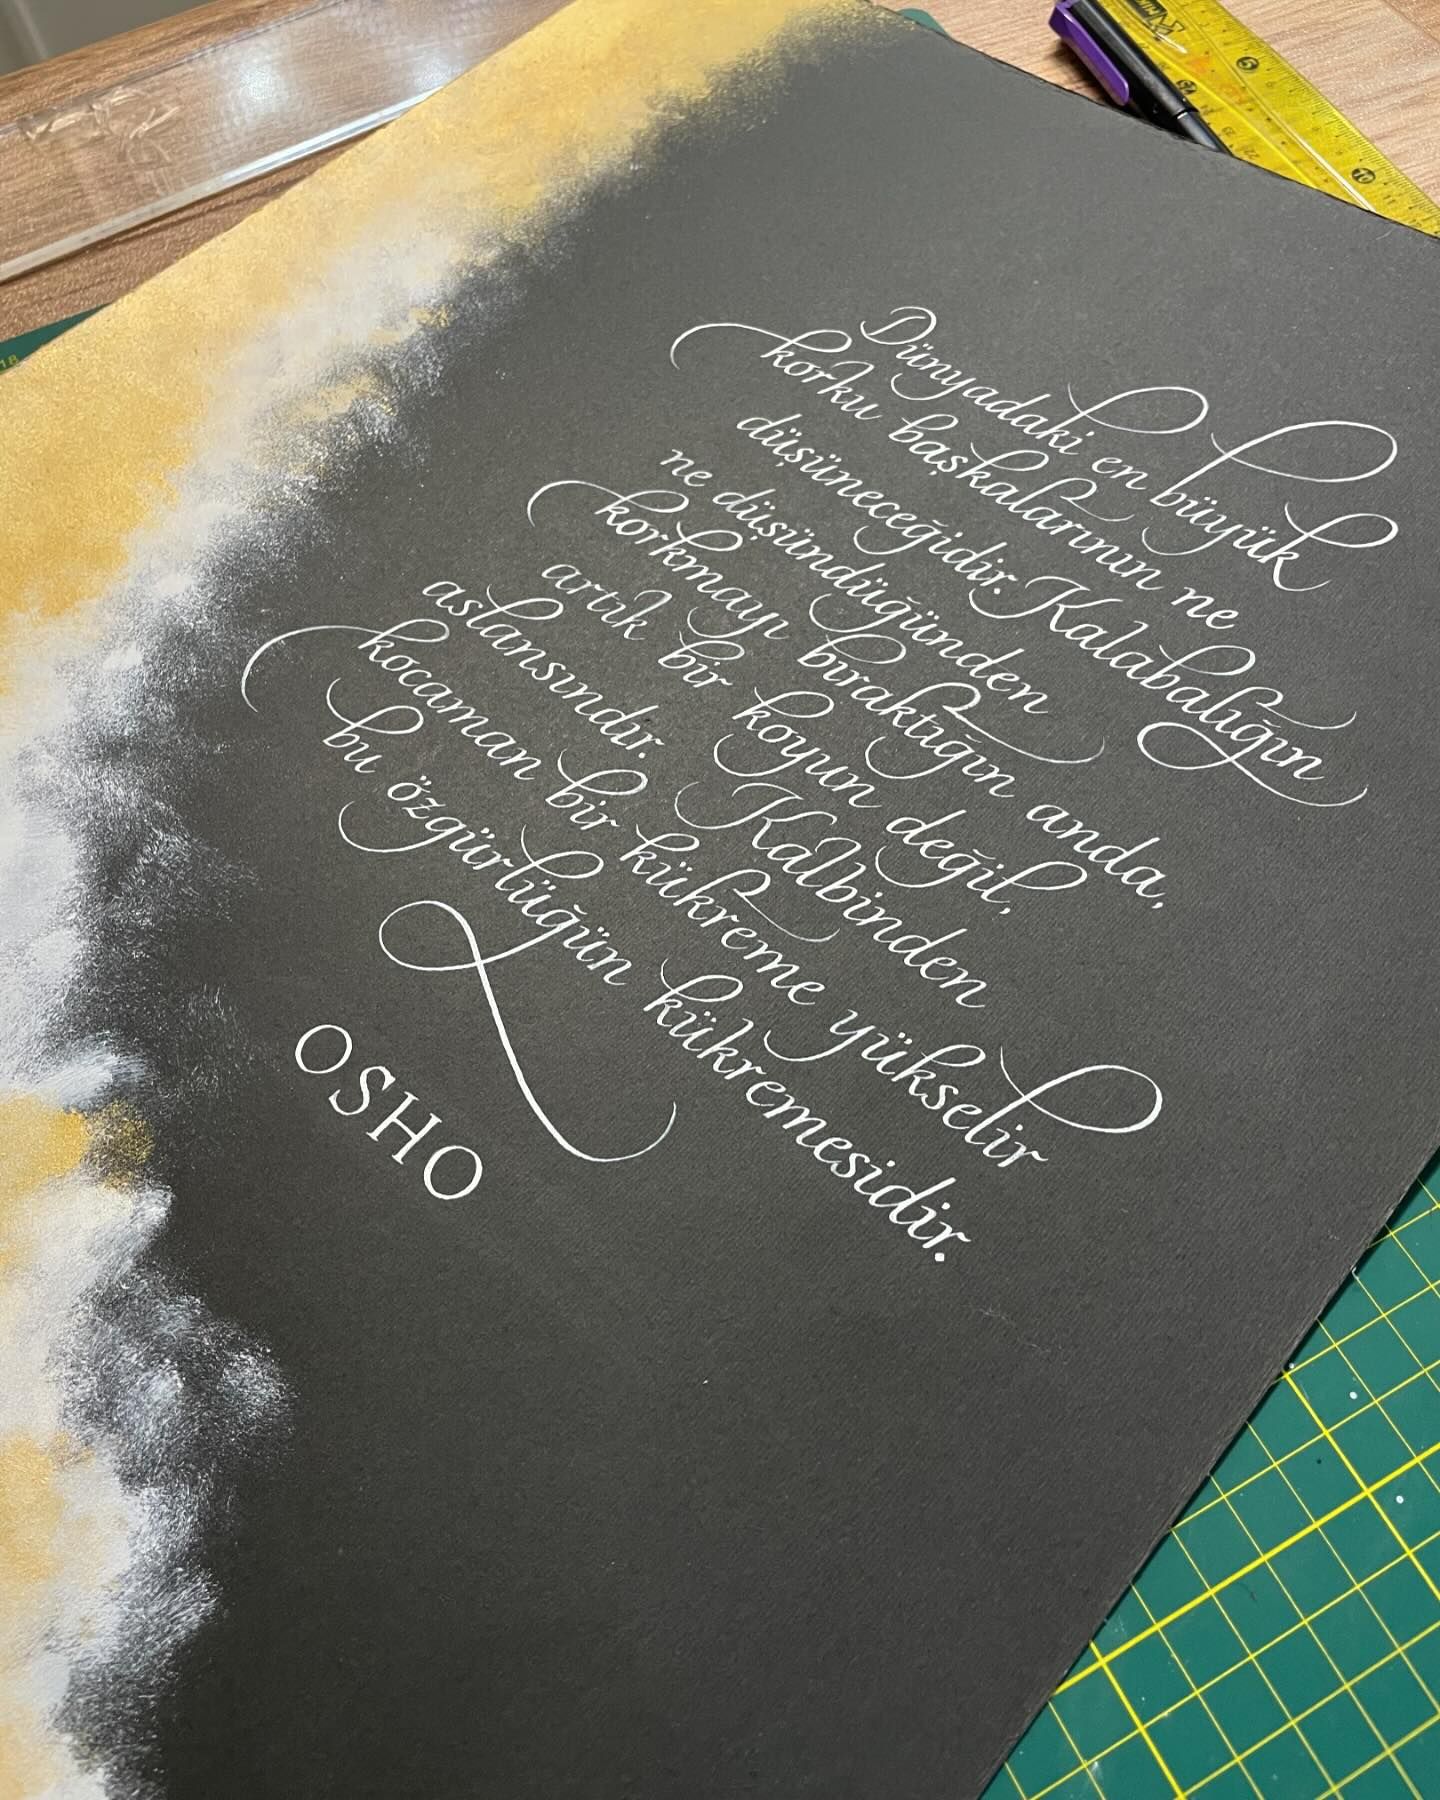 Dünyadaki en büyük
korku başkalarının ne
düşüneceğidir. Kalabalığın
ne düşündüğünden
korkmayı bıraktığın anda,
artık bir koyun değil,
aslansındır. Kalbinden
kocaman bir kükreme yükselir
bu özgürlüğün kükremesidir.
OSHO